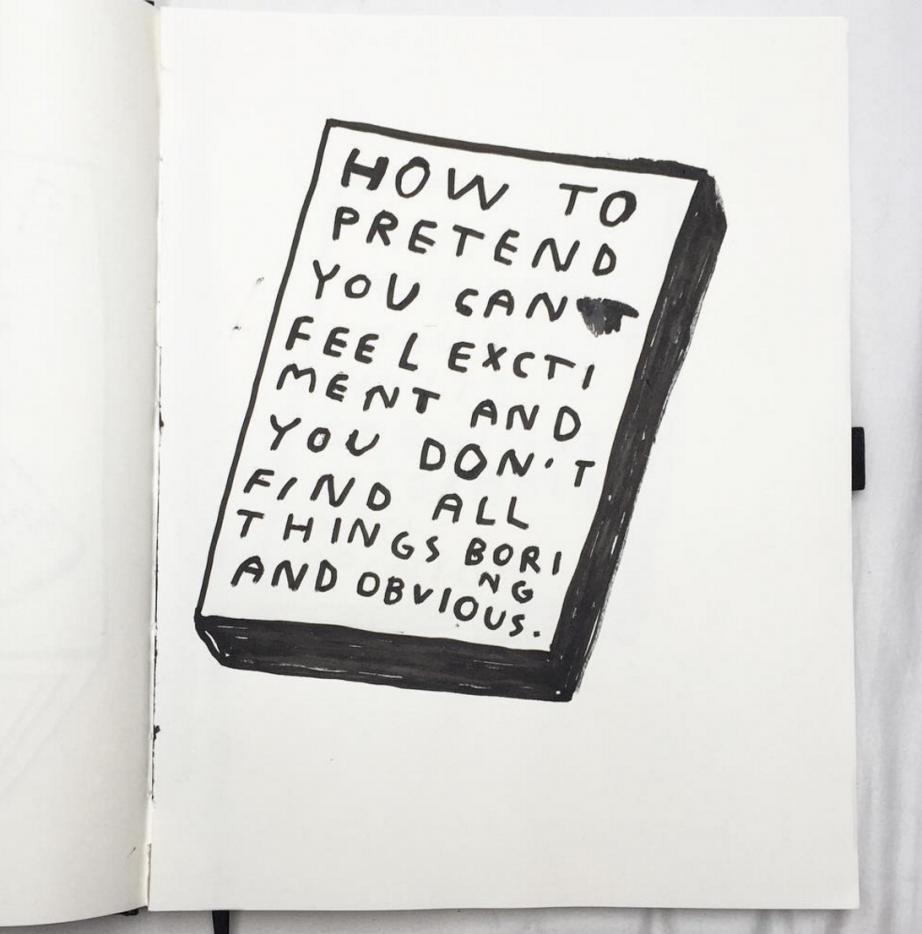 HOW TO
PRETEND
YOU CAN
FEEL EXCTI
MENT AND
YOU DON'T
FIND ALL
THINGS BORI
NG
AND OBVIOUS.